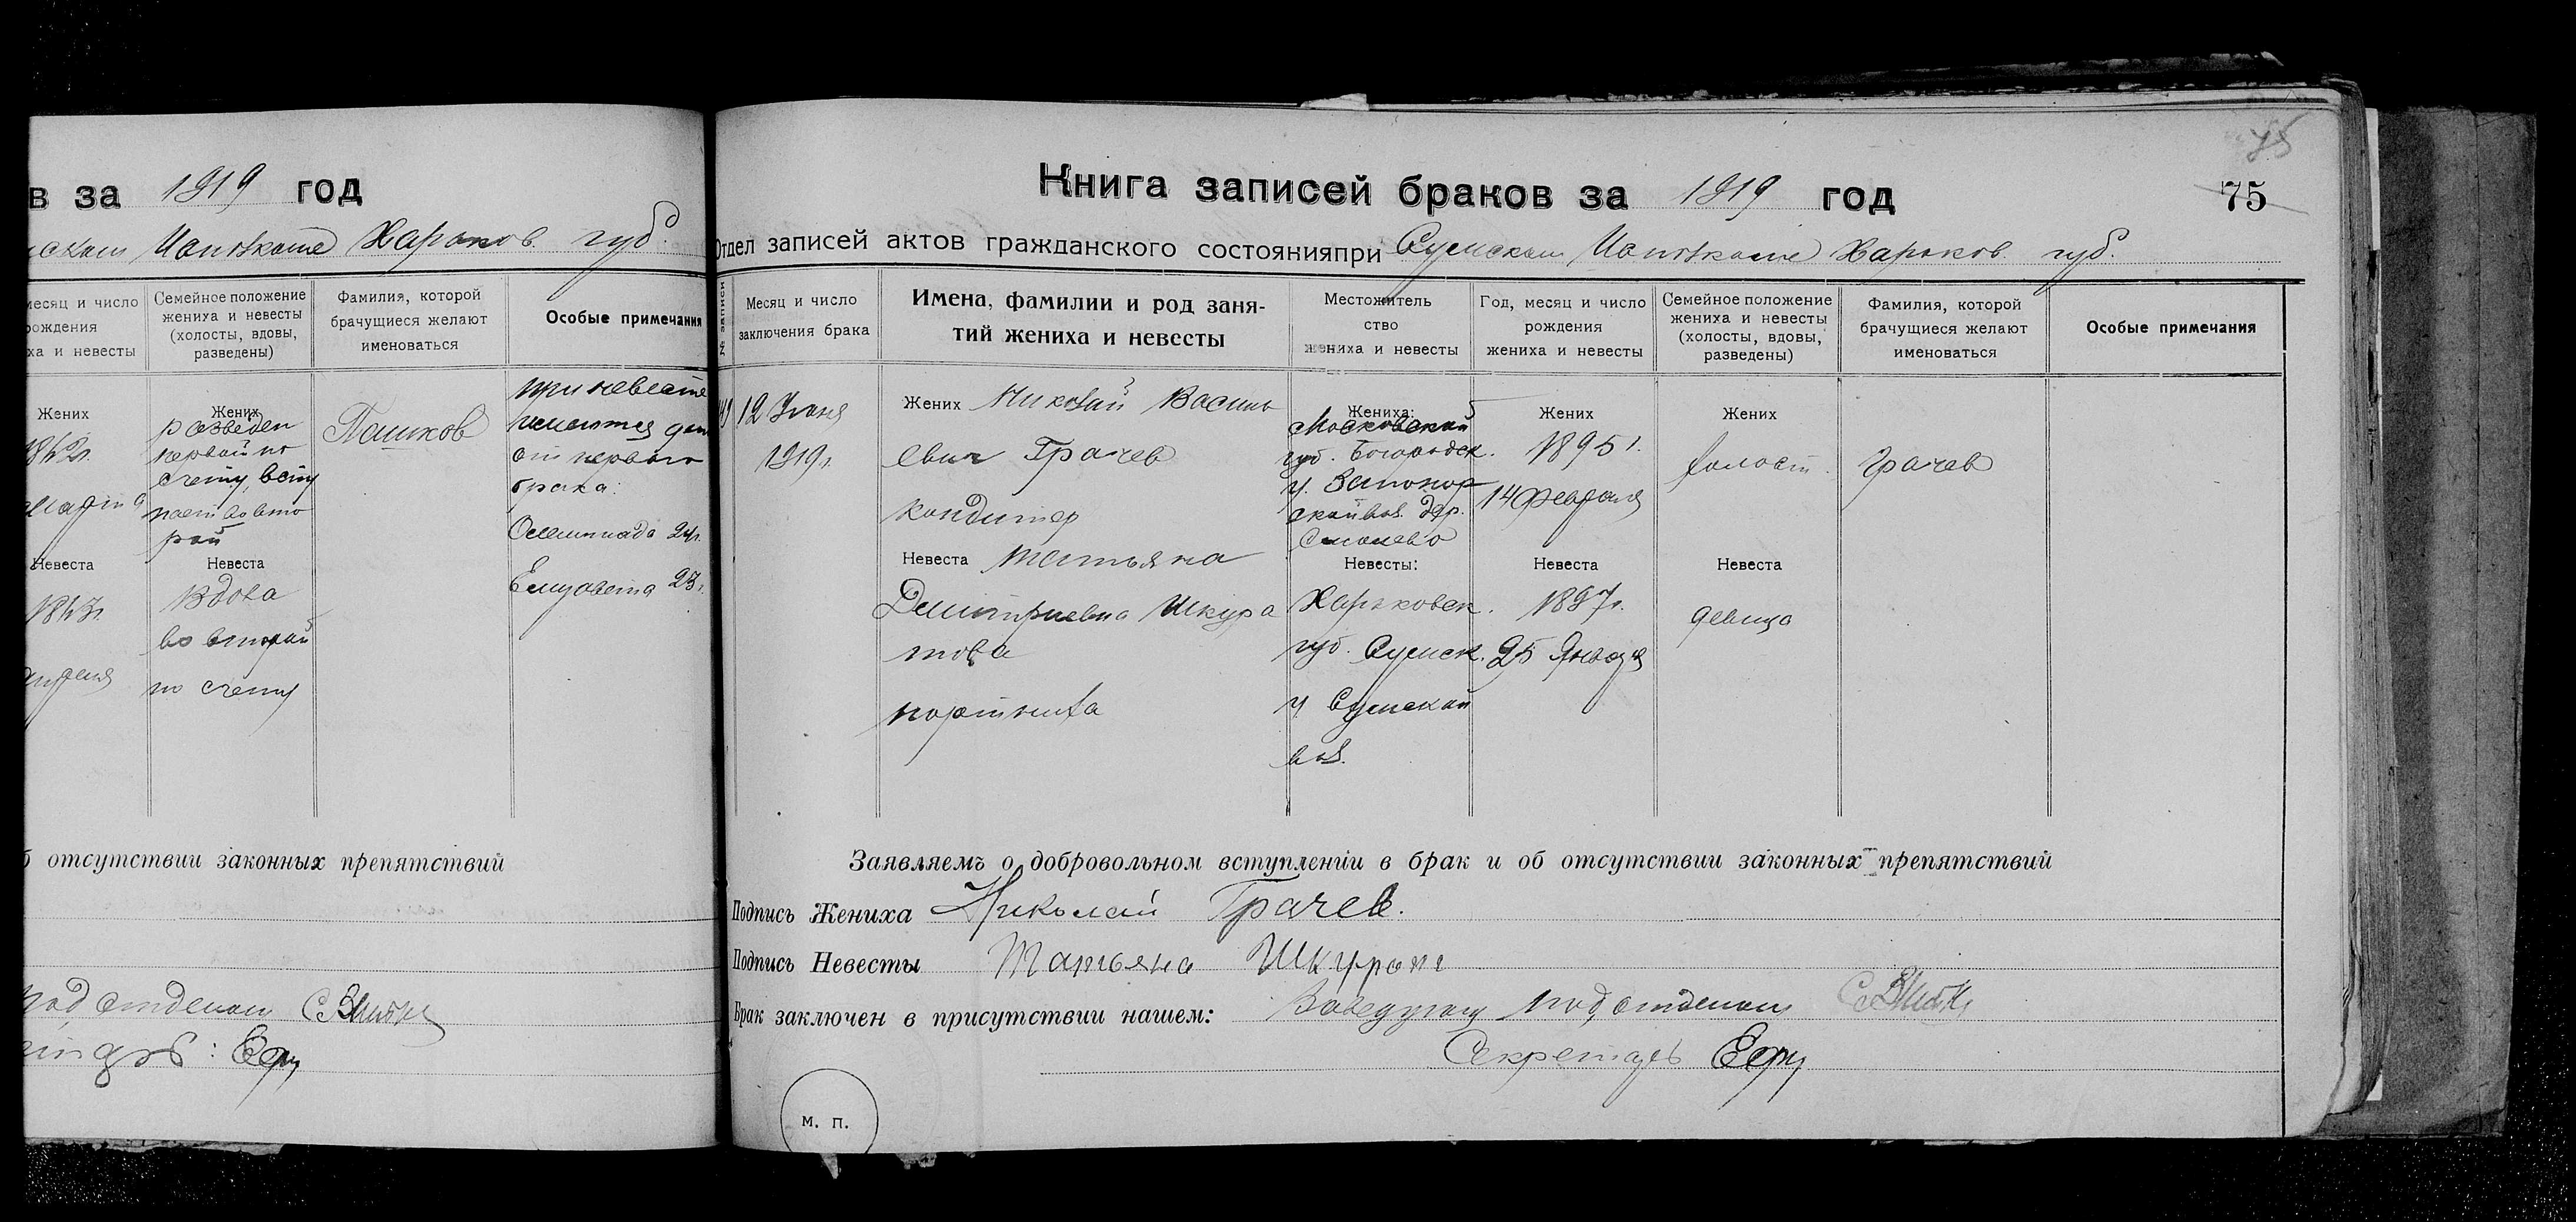 в за 1919 год
Исполкоме Харьков. губ.
месяц и число
рождения
ха и невесты
Семейное положение
жениха и невесты
(холосты, вдовы,
разведены)
Фамилия, которой
брачущиеся желают
именоваться
Особые примечания
Жених
марта
Невеста
апреля
Жених
разведен
первый по
счету, всту
пает во вто
рой
Невеста
Вдова
во второй
по счету
Пашков
при невесте
имеются
от первого
брака:
Олимпиада 24г.
Елизавета 23г.
б отсутствии законных препятствий
подотделом
Книга записей браков за 1919 год
75
75
Отдел записей актов гражданского состояния при Сумском Исполкоме Харьков. губ.
№ записи
Месяц и число
заключения брака
Имена, фамилии и род заня-
тий жениха и невесты
Местожитель
ство
жениха и невесты
Год, месяц и число
рождения
жениха и невесты
Семейное положение
жениха и невесты
(холосты, вдовы,
разведены)
Фамилия, которой
брачущиеся желают
именоваться
Особые примечания
12 Июня
1919г.
Жених Николай Василь
евич Грачев
кондитер
Невеста Татьяна
Дмитриевна Шкура
това
портниха
Жениха:
Московской
губ. Богородск.
у. Запонор
ской вол. дер.
Невесты:
Харьковск.
губ. Сумск.
у Сумской
вол.
Жених
1895г.
14 Февраля
Невеста
1897г.
25 Января
Жених
холост.
Невеста
девица
Грачев
Заявляемъ о добровольном вступлении в брак и об отсутствии законных препятствий
Подпись Жениха Николай Грачев.
Подпись Невесты Татьяна
Брак заключен в присутствии нашем: Заведующ подотделом
Секретарь
м. п.